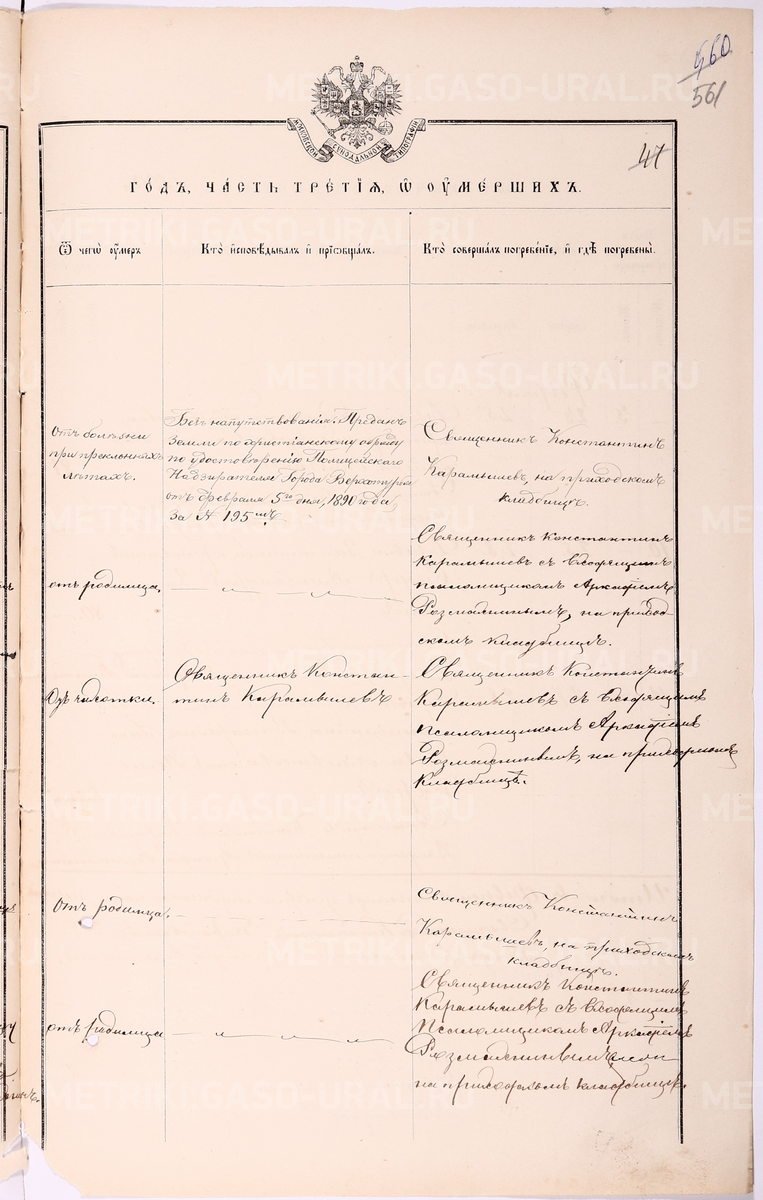 560
561
47
МОСКОВСКОЙ СѴНОДАЛЬНОЙ ТИПОГРАФІИ
ГО́ДЪ, ЧА́СТЬ ТРЕ́ТІѦ, Ѡ҆ ОУ҆МЕ́РШИХЪ.
Ѿ чегѡ̀ оу҆́меръ
Кто̀ и҆сповѣ́дывалъ и҆ прїѡбща́лъ.
Кто̀ соверша́лъ погребе́нїе, и҆ гдѣ̀ погребены̀.
Отъ болѣзни
при преклонныхъ
лѣтахъ.
Безъ напутствованія. Преданъ
земли по христіанскому обряду
по удостовѣренію Полицейскаго
Надзирателя Города Верхотурья
отъ Февраля 5го дня, 1890 года,
за № 195мъ
Священникъ Константинъ
Карамышевъ, на приходскомъ
кладбищѣ.
отъ родимца.
Священникъ Константинъ
Карамышевъ съ
псаломщикомъ Аркадіемъ
на приход-
скомъ кладбищѣ.
Отъ чахотки.
Священникъ Констан-
тинъ Карамышевъ
Священникъ Константинъ
Карамышевъ съ
Псаломщикомъ Аркадіемъ
на приходскомъ
Кладбищѣ.
Отъ родимца.
Священникъ Константинъ
Карамышевъ, на приходскомъ
кладбищѣ.
отъ родимца
Священникъ Константинъ
Карамышевъ съ
Псаломщикомъ Аркадіемъ
на приходскомъ кладбищѣ.
METRIKI.GASO-URAL.RU